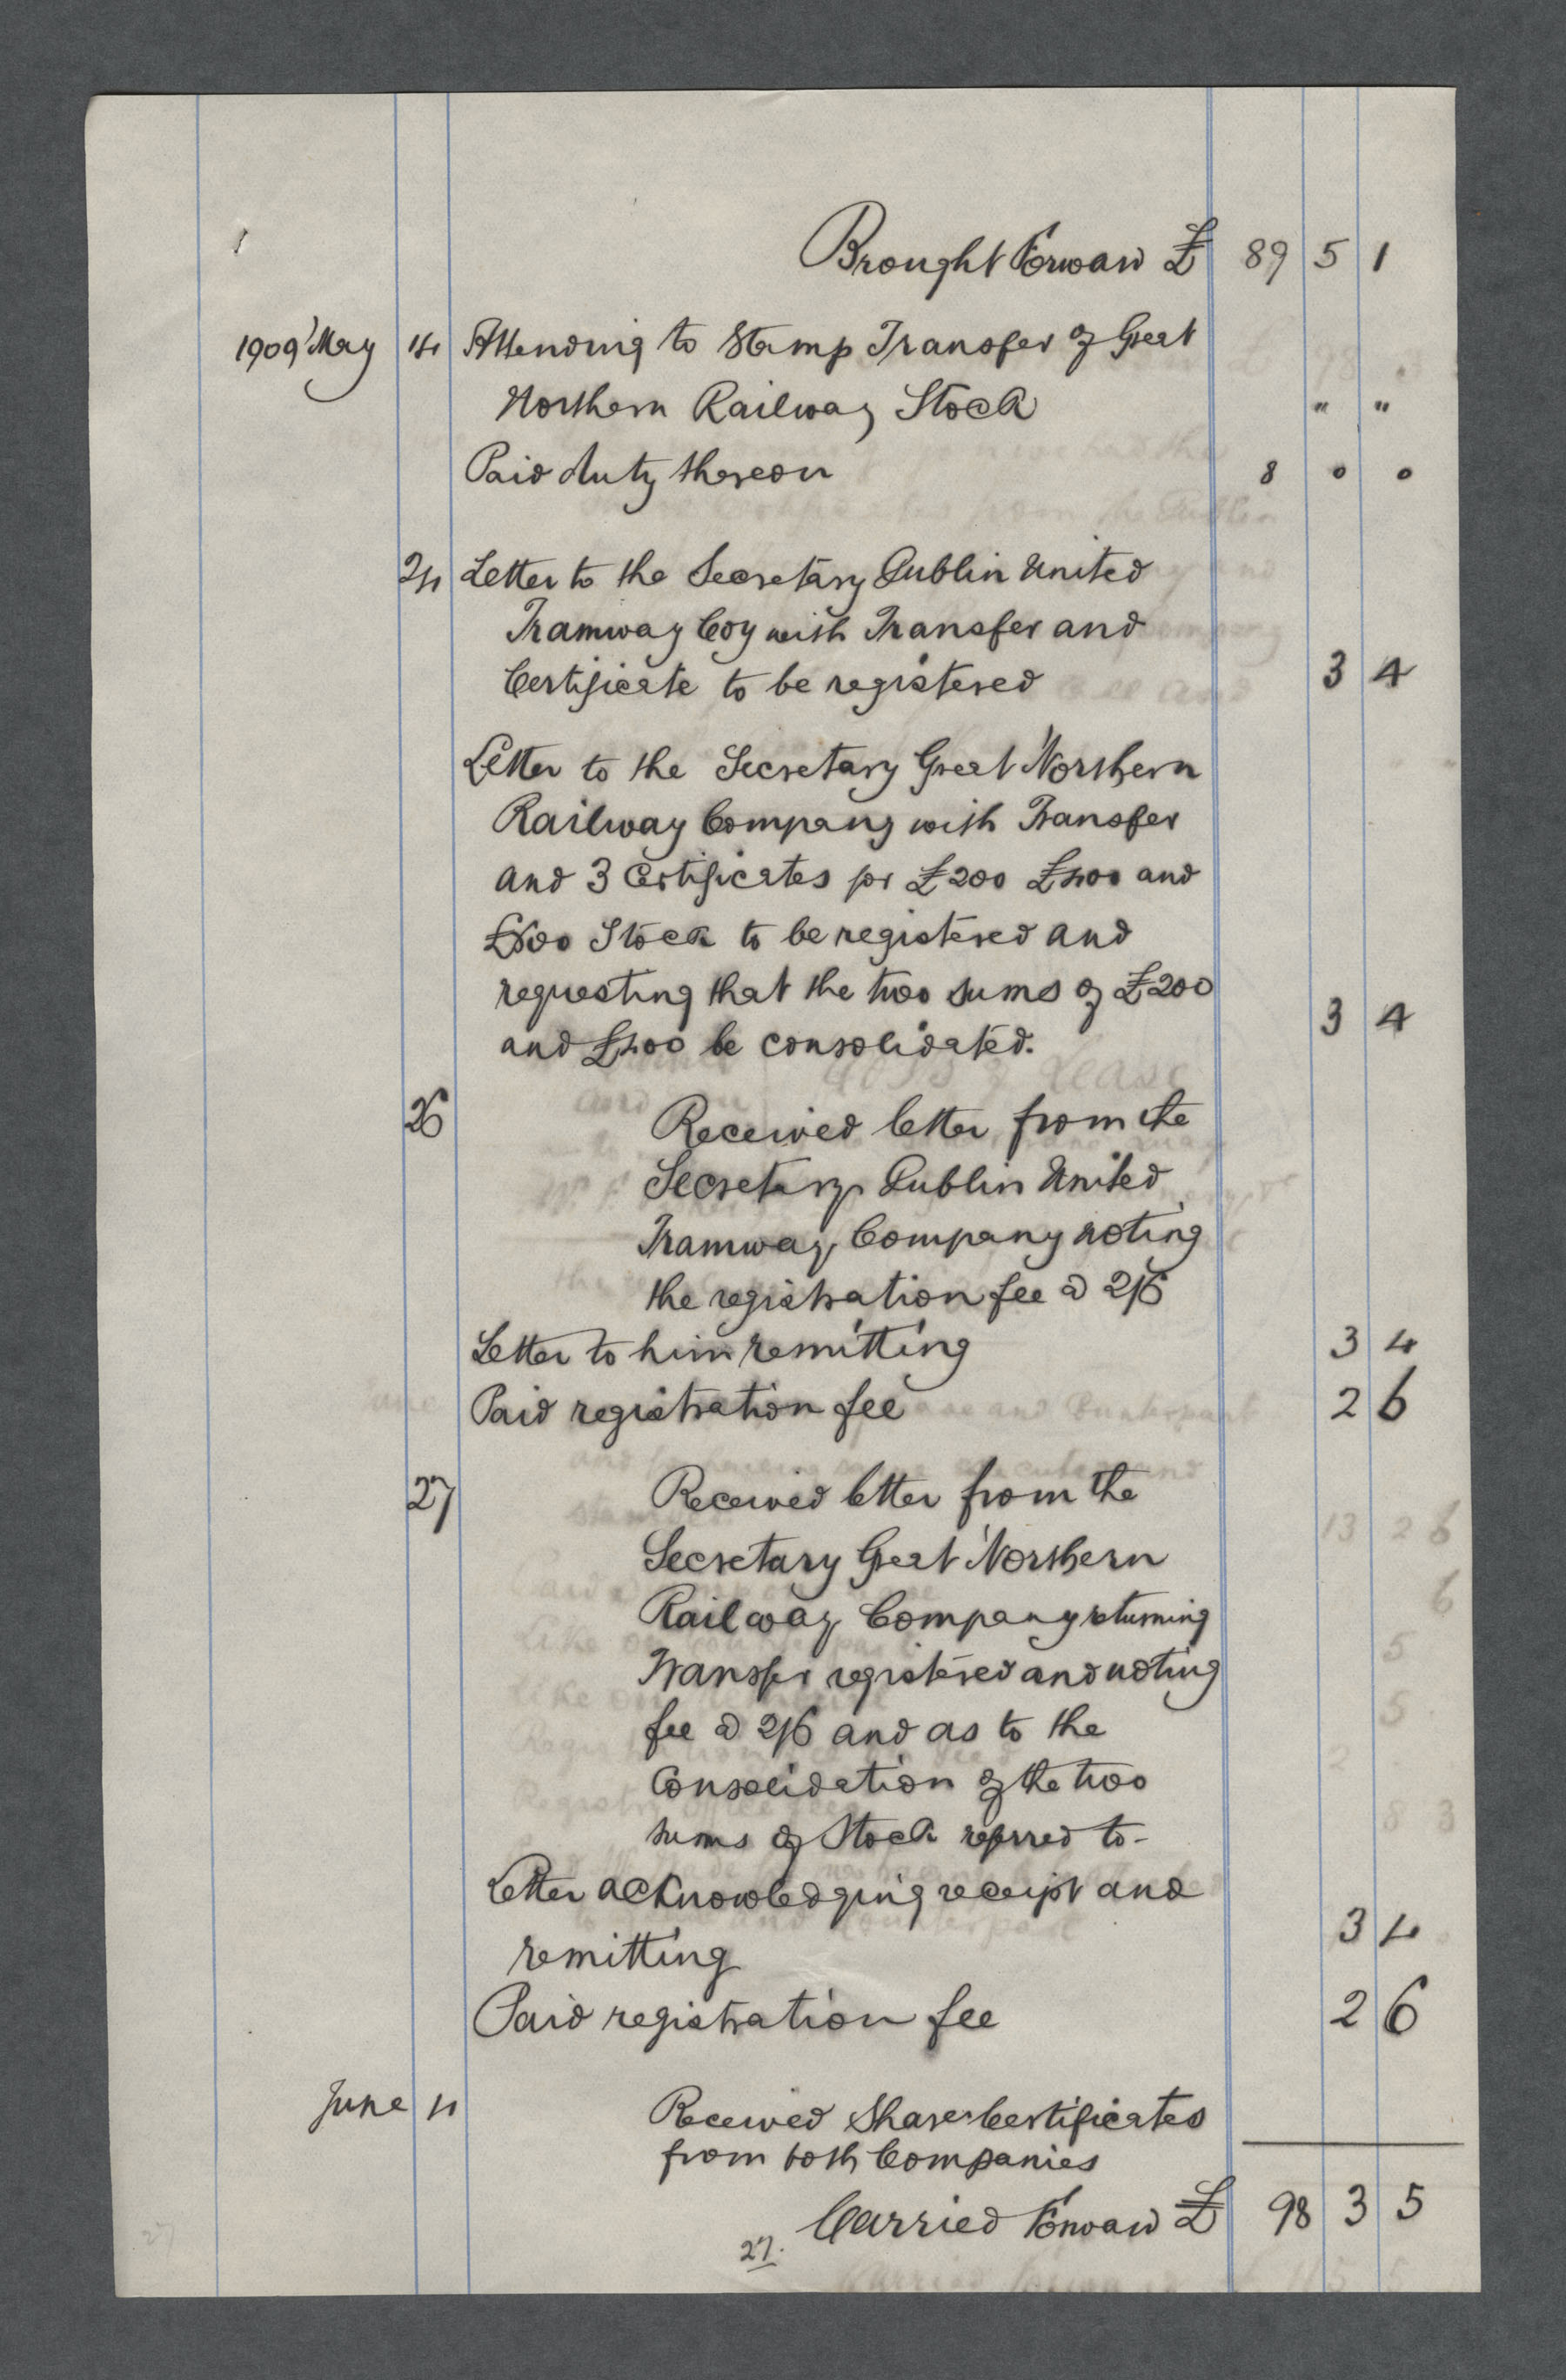 Brought Forward £ 89 5 1
1909 May 14 Attending to Stamp Transfer of Great
Northern Railway Stock " "
Paid duty thereon 8 0 0
24 Letter to the Secretary Dublin United
Tramway Coy with Transfer and
Certificate to be registered 3 4
Letter to the Secretary Great Northern
Railway Company with Transfer
and 3 Certificates for £200 £400 and
Stock to be registered and
requesting that the two sums of £200
and £400 be consolidated. 3 4
26 Received letter from the
Secretary Dublin United
Tramway Company noting
the registration fee @ 2/6
Letter to him remitting 3 4
Paid registration fee 2 6
27 Received letter from the
Secretary Great Northern
Railway Company returning
Transfer registered and noting
fee @ 2/6 and as to the
Consolidation of the two
sums of Stock referred to-
Letter acknowledging receipt and
remitting 3 4
Paid registration fee 2 6
June 4 Received Share Certificates
from both Companies
Carried Forward £ 98 3 5
27.
27